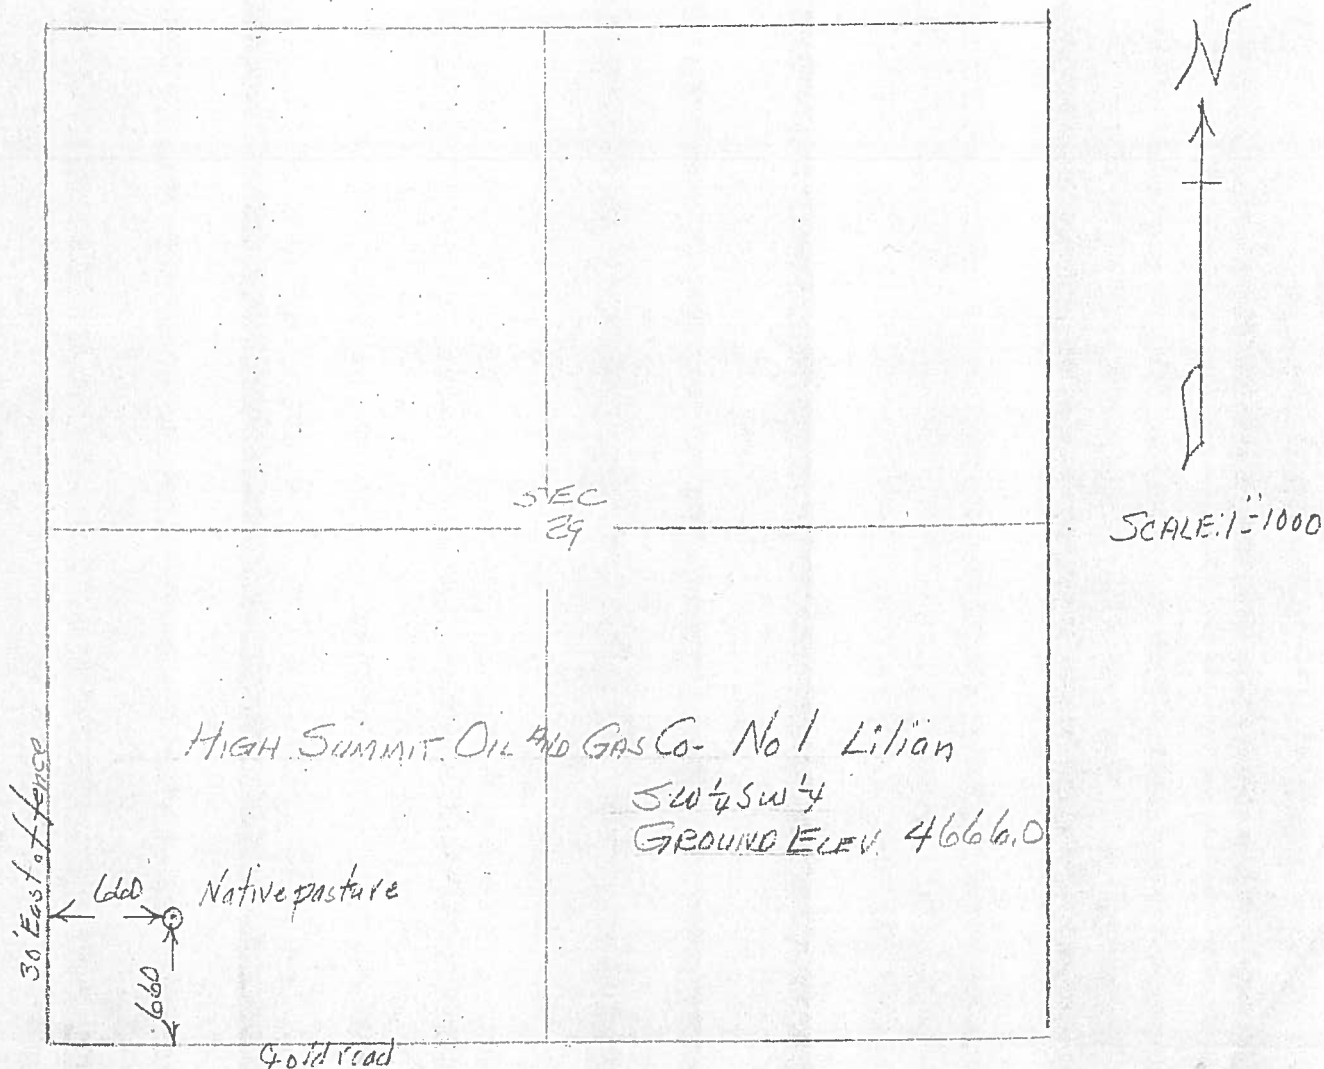 N
SEC
29
SCALE: 1"=1000
HIGH SUMMIT OIL AND GAS Co- No 1 Lilian
SW 1/4 SW 1/4
GROUND ELEV. 4666.0
30' East of fence
660
Native pasture
660
road